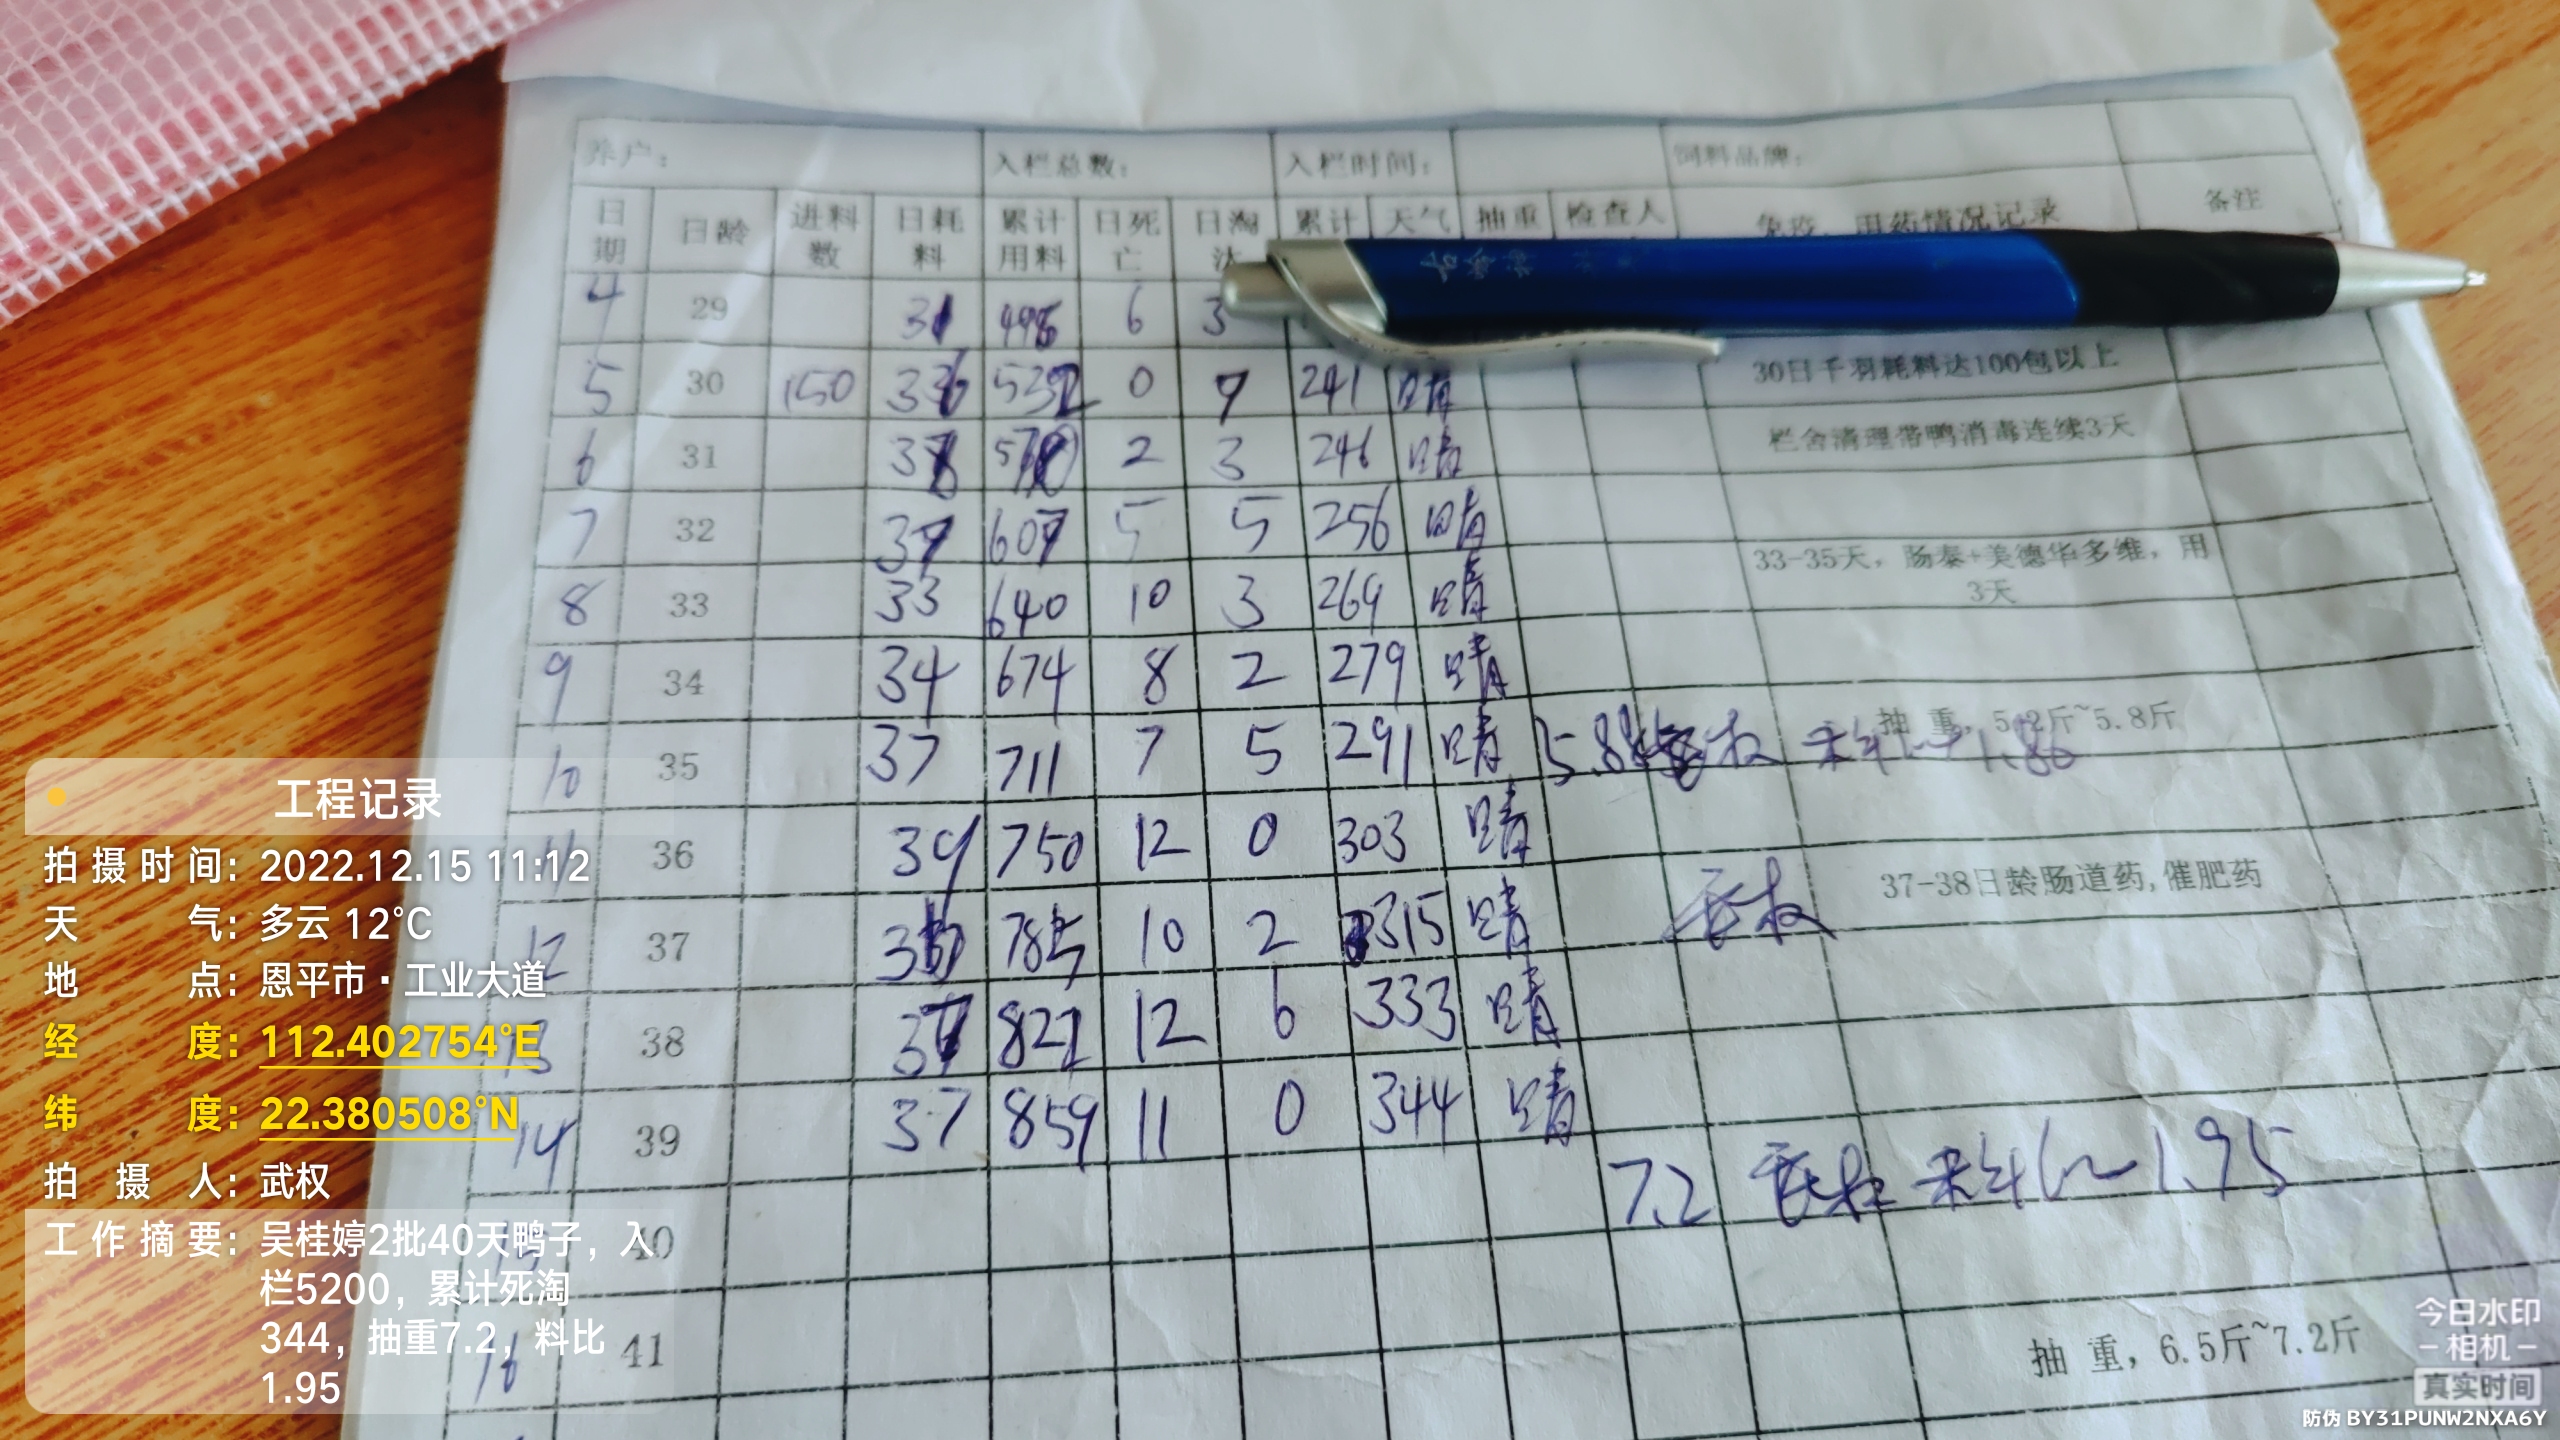 养户： 入栏总数： 入栏时间： 饲料品牌：
日期 日龄 进料数 日耗料 累计用料 日死亡 日淘汰 累计 天气 抽重 检查人 免疫、用药情况记录 备注
4 29 31 6 3
5 30 150 36 532 0 9 241 晴 30日千羽耗料达100包以上
6 31 38 570 2 3 246 晴 栏舍清理带鸭消毒连续3天
7 32 37 607 5 5 256 晴
8 33 33 640 10 3 269 晴 33-35天，肠泰+美德华多维，用
3天
9 34 34 674 8 2 279 晴
抽 重，5.2斤~5.8斤
10 35 37 711 7 5 291 晴 5.8 料比 1.86
11 36 39 750 12 0 303 晴
12 37 785 10 2 315 晴 武权 37-38日龄肠道药,催肥药
13 38 37 822 12 6 333 晴
14 39 37 859 11 0 344 晴
7.2 武权 料比~1.95
40
16 41 抽 重，6.5斤~7.2斤
工程记录
拍摄时间：2022.12.15 11:12
天气：多云 12°C
地点：恩平市·工业大道
经度：112.402754°E
纬度：22.380508°N
拍摄人：武权
工作摘要：吴桂婷2批40天鸭子，入
栏5200，累计死淘
344，抽重7.2，料比
1.95
今日水印
-相机-
真实时间
防伪 BY31PUNW2NXA6Y